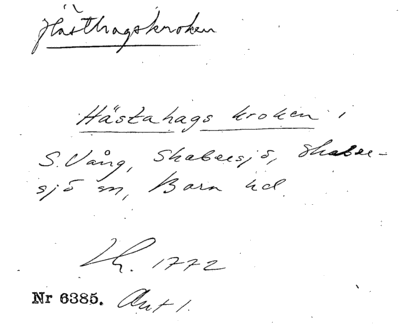 Hästhagskroken
Hästahags kroken i
S. Vång, Skabersjö, Skaber-
sjö sn, Bara hd.
Lh. 1772
Nr 6385. Akt 1.